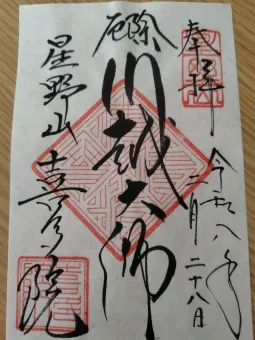 奉拝
令和八年
二月二十八日
厄除
川越大師
星野山
喜多院